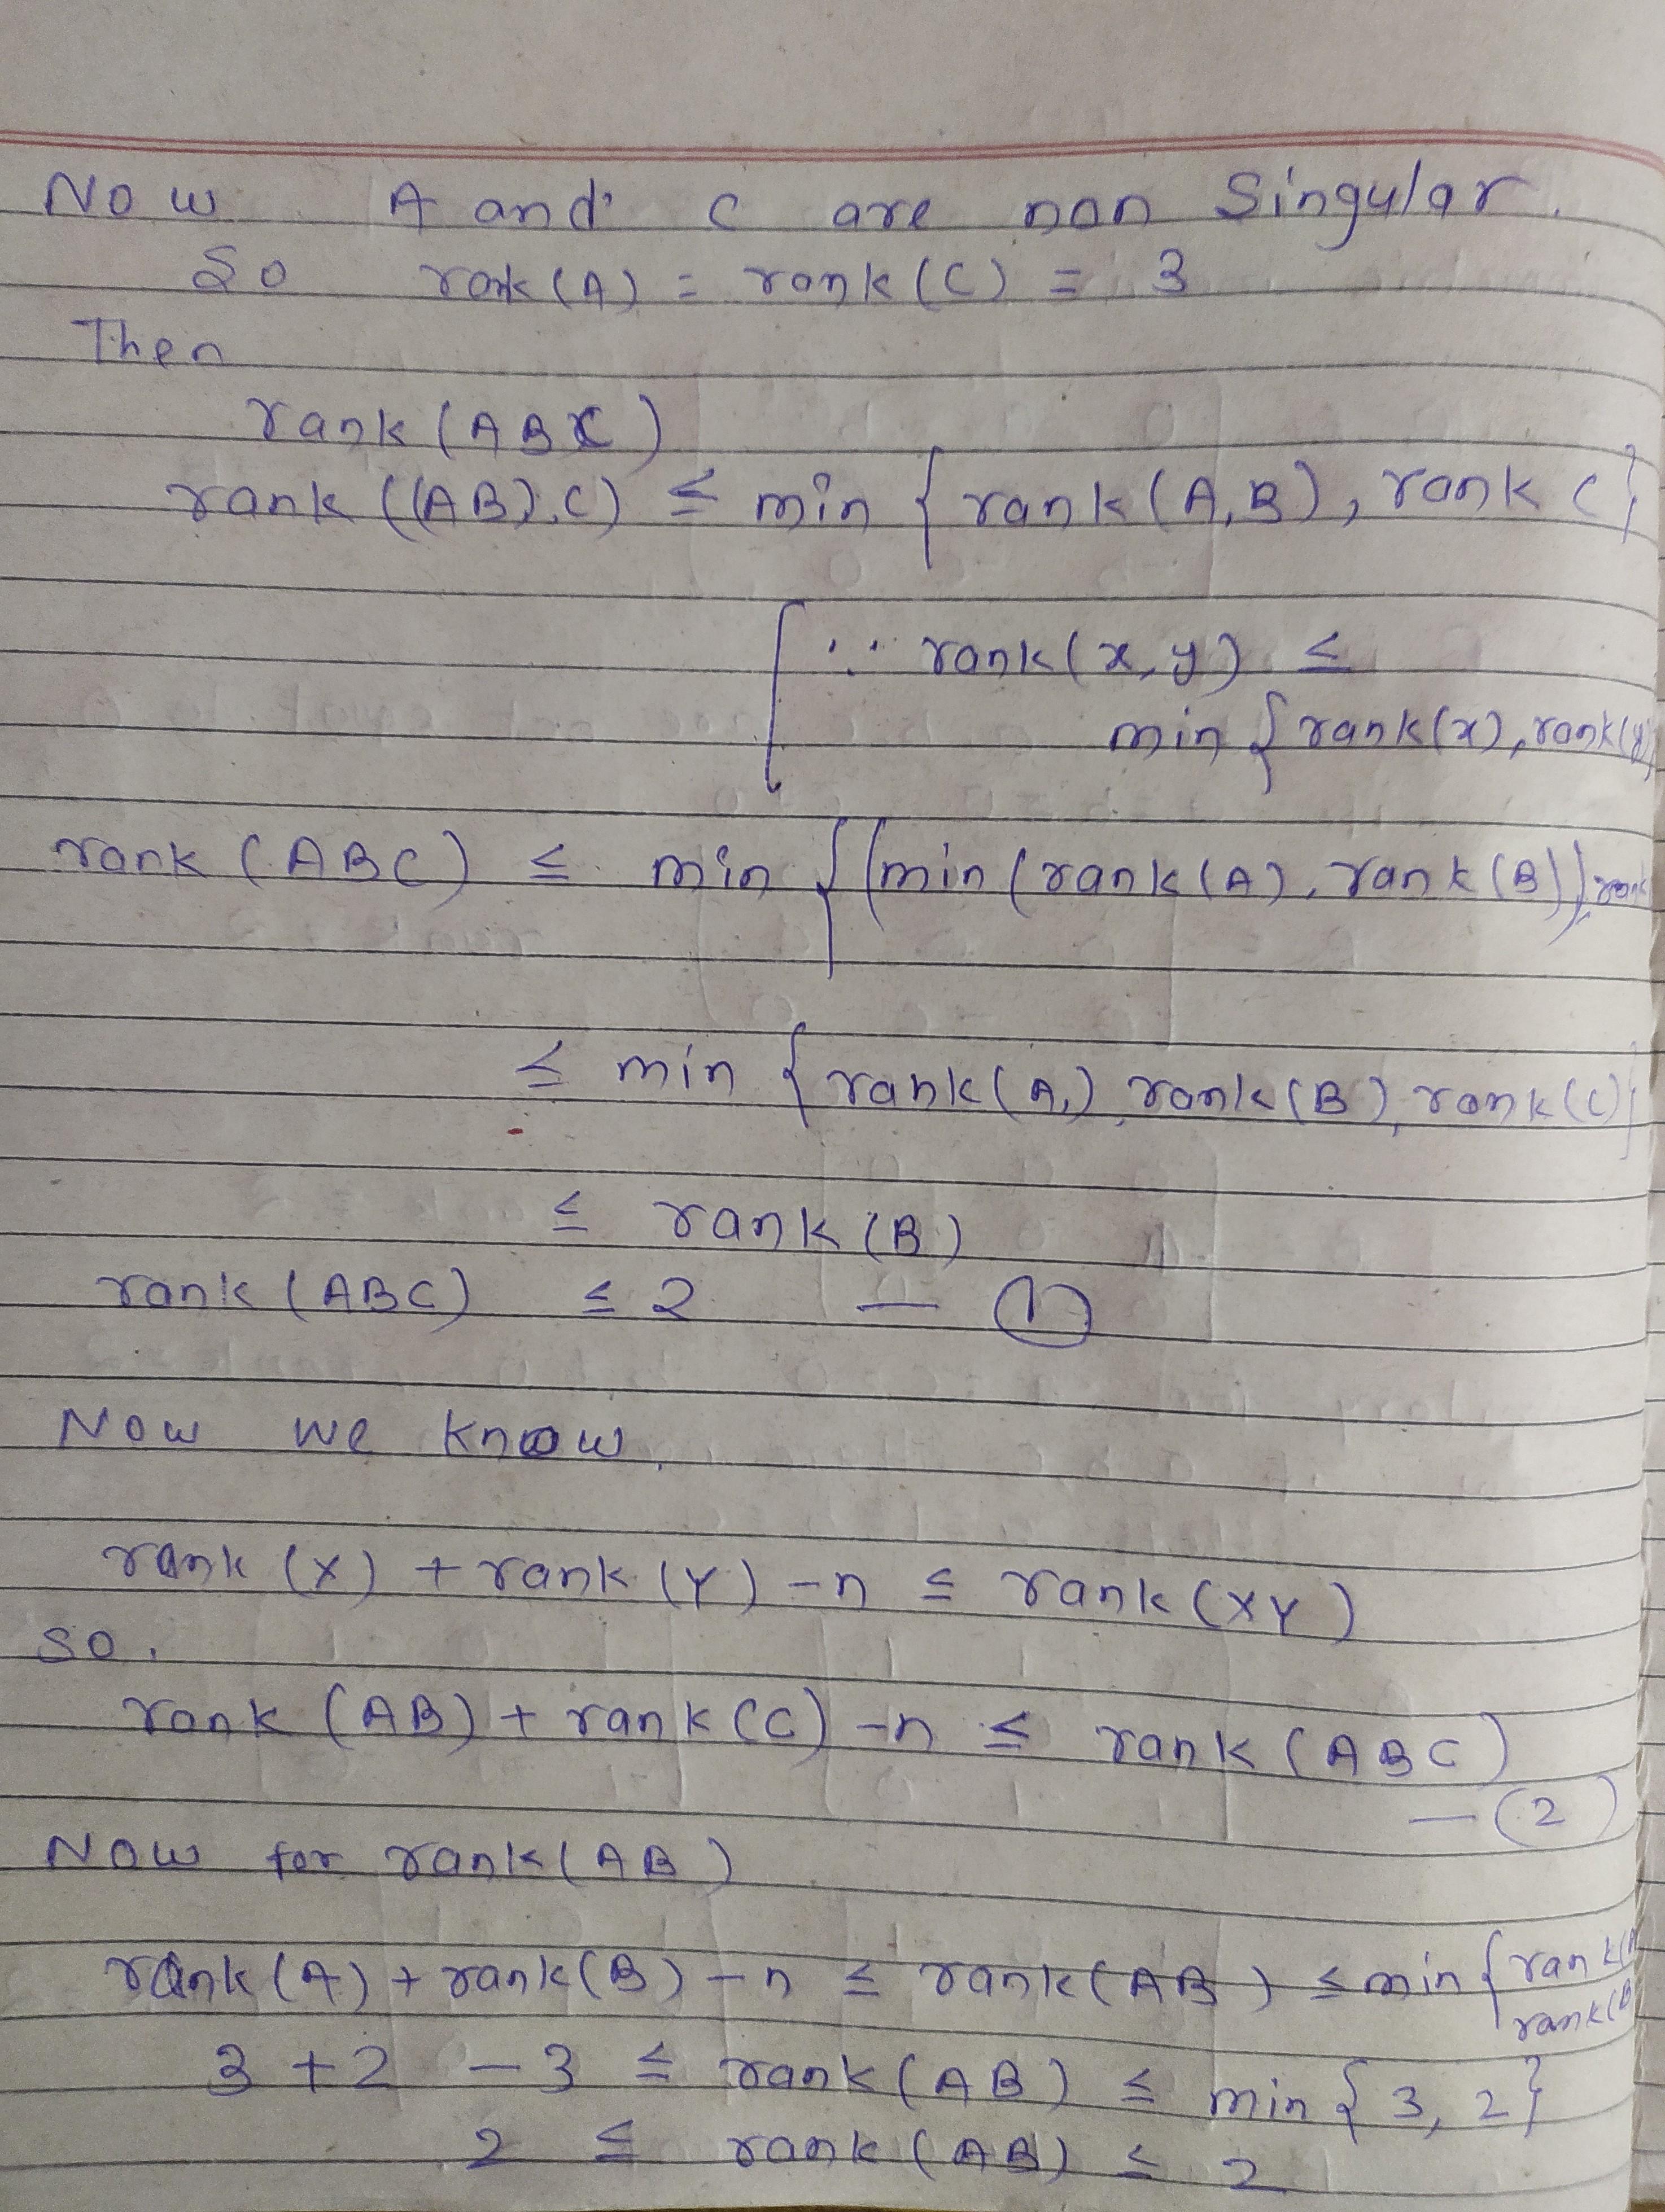 Now A and C are non Singular.
So rank(A) = rank(C) = 3
Then
rank(ABC)
rank((AB).C) ≤ min { rank(A,B), rank C}
[ ∵ rank(x,y) ≤
min { rank(x), rank(y)
rank (ABC) ≤ min { (min (rank(A), rank(B)), rank
≤ min { rank(A,) rank(B), rank(C)}
≤ rank(B)
rank(ABC) ≤ 2 — ①
Now we know,
rank (X) + rank (Y) - n ≤ rank (XY)
so.
rank (AB) + rank (C) - n ≤ rank (ABC)
— (2)
Now for rank(AB)
rank(A) + rank(B) - n ≤ rank(AB) ≤ min { rank(A
rank(B
3 + 2 - 3 ≤ rank(AB) ≤ min { 3, 2}
2 ≤ rank(AB) ≤ 2